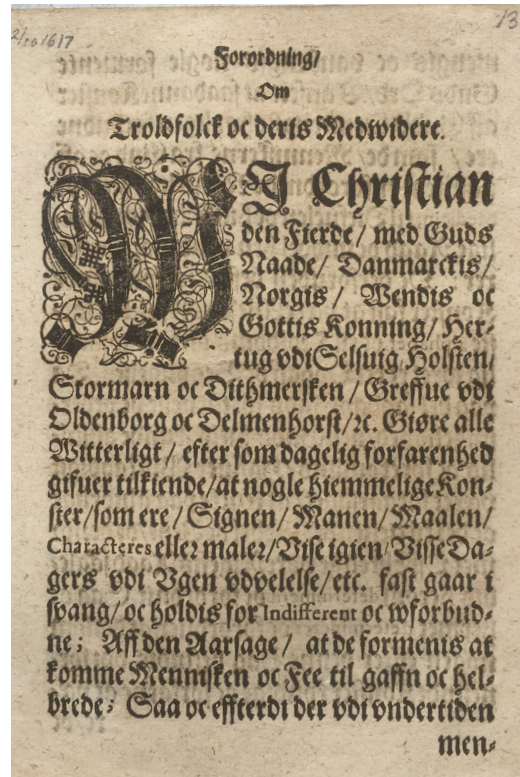 13
12/10 1617
Forordning/
Om
Troldfolck oc deris Medwidere.
WJ Christian
den Fierde/ med Guds
Naade/ Danmarckis/
Norgis/ Wendis oc
Gottis Konning/ Her-
tug vdi Selsuig, Holsten/
Stormarn oc Dithmersken/ Greffue vdi
Oldenborg oc Delmenhorst/ꝛc. Giøre alle
Witterligt/ efter som dagelig forfarenhed
gifuer tilkiende/at nogle hiemmelige Kon-
ster/som ere/ Signen/ Manen/ Maalen/
Characteres eller maler/Vise igien/Visse Da-
gers vdi Vgen vdvelelse/etc. fast gaar i
svang/ oc holdis for Indifferent oc wforbud-
ne; Aff den Aarsage/ at de formenis at
komme Mennisken oc Fee til gaffn oc hel-
brede; Saa oc effterdi der vdi vndertiden
men-